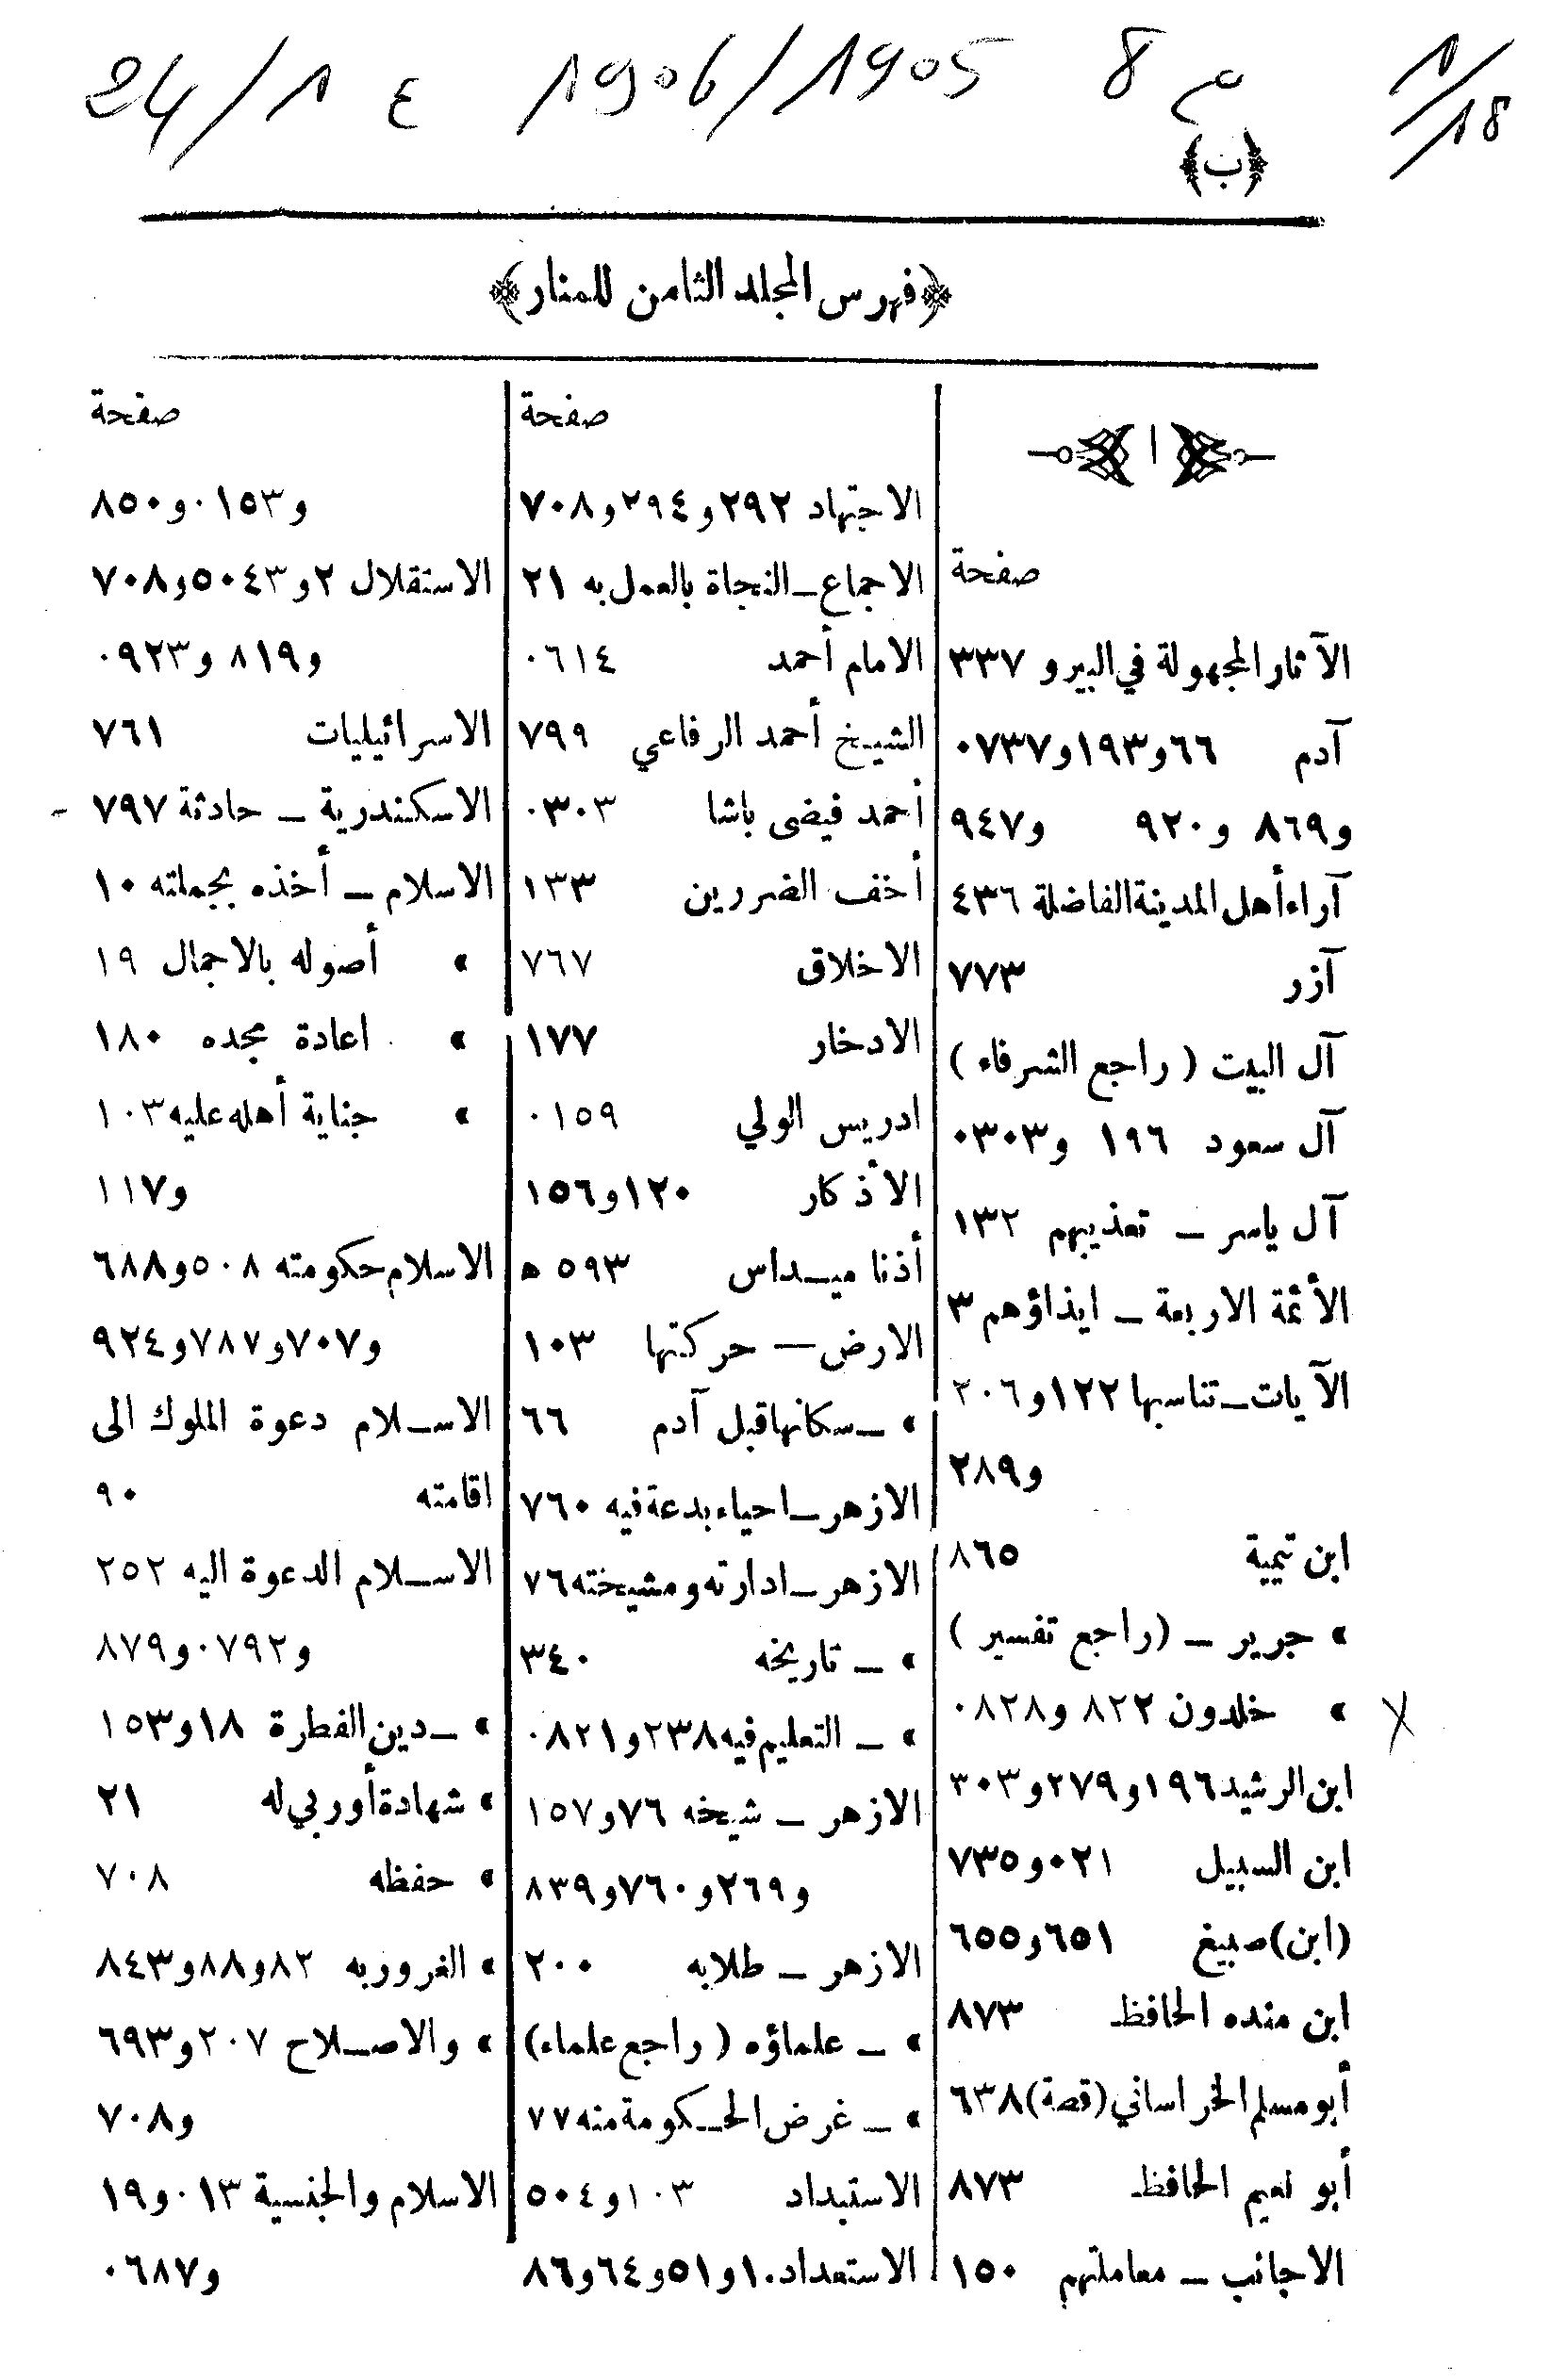 24/1 ع 1906/1905 م 8 1/18
﴿ب﴾
﴿فهرس المجلد الثامن للمنار﴾
﴾ ا ﴿
صفحة
الآثار المجهولة في البيرو ٣٣٧
آدم ٦٦و١٩٣و٠٧٣٧
و٨٦٩ و٩٢٠ و٩٤٧
آراء أهل المدينة الفاضلة ٤٣٦
آزر ٧٧٣
آل البيت ( راجع الشرفاء )
آل سعود ١٩٦ و٠٣٠٣
آل ياسر ــ تعذيبهم ١٣٢
الأئمة الاربعة ــ ايذاؤهم ٣
الآيات ــ تناسبها ١٢٢و٢٠٦
و٢٨٩
ابن تيمية ٨٦٥
» جرير ــ (راجع تفسير )
» خلدون ٨٢٢ و٠٨٢٨
ابن الرشيد ١٩٦و٢٧٩و٣٠٣
ابن السبيل ٠٢١و٧٣٥
(ابن) صبيغ ٦٥١و٦٥٥
ابن منده الحافظ ٨٧٣
أبو مسلم الخراساني (قصة) ٦٣٨
أبو نعيم الحافظ ٨٧٣
الاجانب ــ معاملتهم ١٥٠
صفحة
الاجتهاد ٢٩٢و٢٩٤و٧٠٨
الاجماع ــ النجاة بالعمل به ٢١
الامام أحمد ٠٦١٤
الشيخ أحمد الرفاعي ٧٩٩
أحمد فيضى باشا ٠٣٠٣
أخف الضررين ١٣٣
الاخلاق ٧٦٧
الادخار ١٧٧
ادريس الولي ٠١٥٩
الأذكار ١٢٠و١٥٦
أذنا ميـداس ٥٩٣ ه
الارض — حركتها ١٠٣
» ــ سكانها قبل آدم ٦٦
الازهر ــ احياء بدعة فيه ٧٦٠
الازهر ــ ادارته ومشيخته ٧٦
» ــ تاريخه ٣٤٠
» ــ التعليم فيه ٢٣٨و٠٨٢١
الازهر ــ شيخه ٧٦و١٥٧
و٢٦٩و٧٦٠و٨٣٩
الازهر ــ طلابه ٢٠٠
» ــ علماؤه ( راجع علماء)
» ــ غرض الحـكومة منه ٧٧
الاستبداد ١٠٣و٥٠٤
الاستعداد ١٠و٥١و٦٤و٨٦
صفحة
و٠١٥٣و٨٥٠
الاستقلال ٢و٥٠٤٣و٧٠٨
و٨١٩ و٠٩٢٣
الاسرائيليات ٧٦١
الاسكندرية ــ حادثة ٧٩٧
الاسلام ــ أخذه بجملته ١٠
» أصوله بالاجمال ١٩
» اعادة مجده ١٨٠
» جناية أهله عليه ١٠٣
و١١٧
الاسلام حكومته ٥٠٨و٦٨٨
و٧٠٧و٧٨٧و٩٢٤
الاسـلام دعوة الملوك الى
اقامته ٩٠
الاسـلام الدعوة اليه ٢٥٢
و٠٧٩٢و٨٧٩
» ــ دين الفطرة ١٨و١٥٣
» شهادة أوربي له ٢١
» حفظه ٧٠٨
» الغرور به ٨٢و٨٨و٨٤٣
» والاصـلاح ٢٠٧و٦٩٣
و٧٠٨
الاسلام والجنسية ٠١٣و١٩
و٠٦٨٧